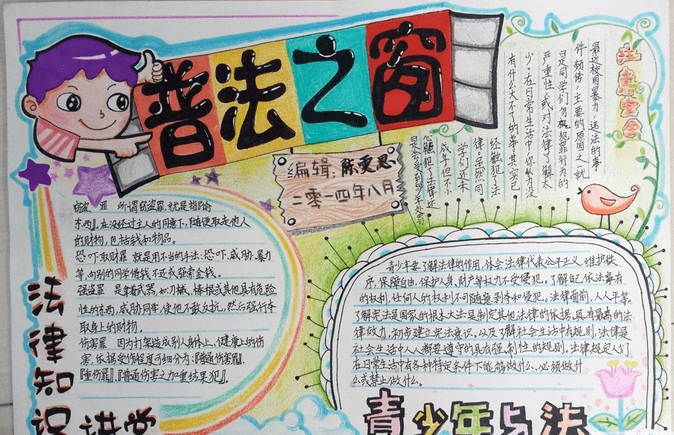 普法之窗
编辑：陈雯思
二零一四年八月
注意安全
最近校园暴力，违法的事
件频传，主要的原因之一就
是同学们勿视犯罪行为的
严重性，或对法律了解太
少。在日常生活中，你认为没
有什么大不了的事，其实已
经触犯了法
律，虽然同
学们还未
成年，但不
罪 所谓窃盗罪，就是指「偷
东西」，在没经过主人的同意下，随便取走他人
的财物，包括钱和物品。
恐吓取财罪 就是用不当的手法：恐吓、威胁、暴力
等，向别的同学借钱不还或勒索金钱。
强盗罪 是拿武器，如刀械、棒棍或其他具有危险
性的东西，威胁同学，使他不敢反抗，然后强行夺
取身上的财物。
伤害罪 因为打架造成别人身体上、健康上的伤
害，依据受伤程度可细分为：「普通伤害罪」、
「重伤罪」、「普通伤害之加重结果犯」。
法律知识讲堂
青少年要了解法律的作用，体会法律代表公平正义、维护秩
序，保障自由，保护人身、财产等权力不受侵犯，了解自己依法享有
的权利，任何人的权利不可随意剥夺和侵犯，法律面前，人人平等。
了解宪法是国家的根本大法是制定其他法律的依据，具有最高的法
律效力，初步建立宪法意识，以及了解社会生活中有规则，法律是
社会生活中人人都要遵守的具有强制性的规则，法律规定人们
在日常生活中有各种特定条件下能够做什么、必须做什
么或禁止做什么。
青少年与法